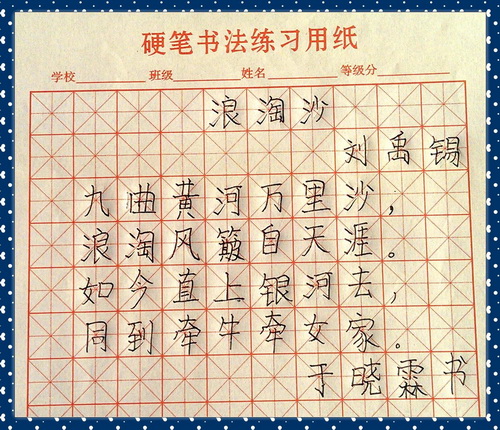 硬笔书法练习用纸
学校 班级 姓名 等级分
浪淘沙
刘禹锡
九曲黄河万里沙，
浪淘风簸自天涯。
如今直上银河去，
同到牵牛牵女家。
于晓霖书